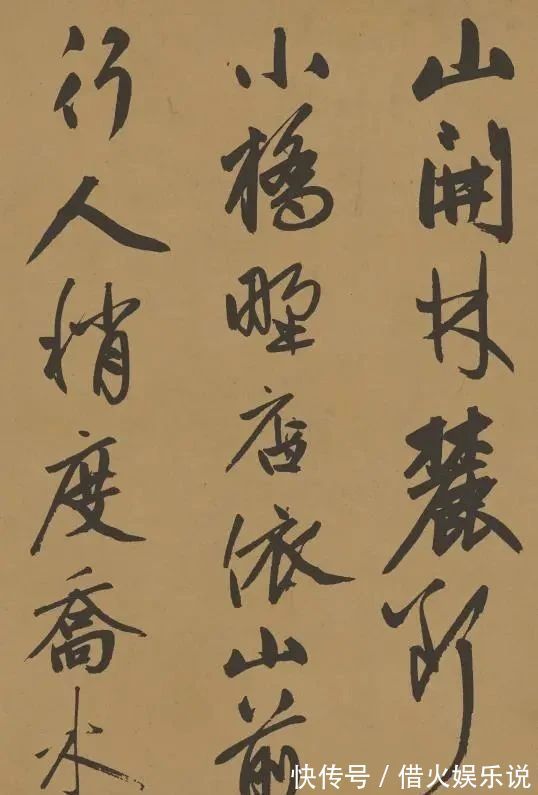 山開林麓断
小橋野店依山前
行人稍度喬木
快传号 / 借火娱乐说